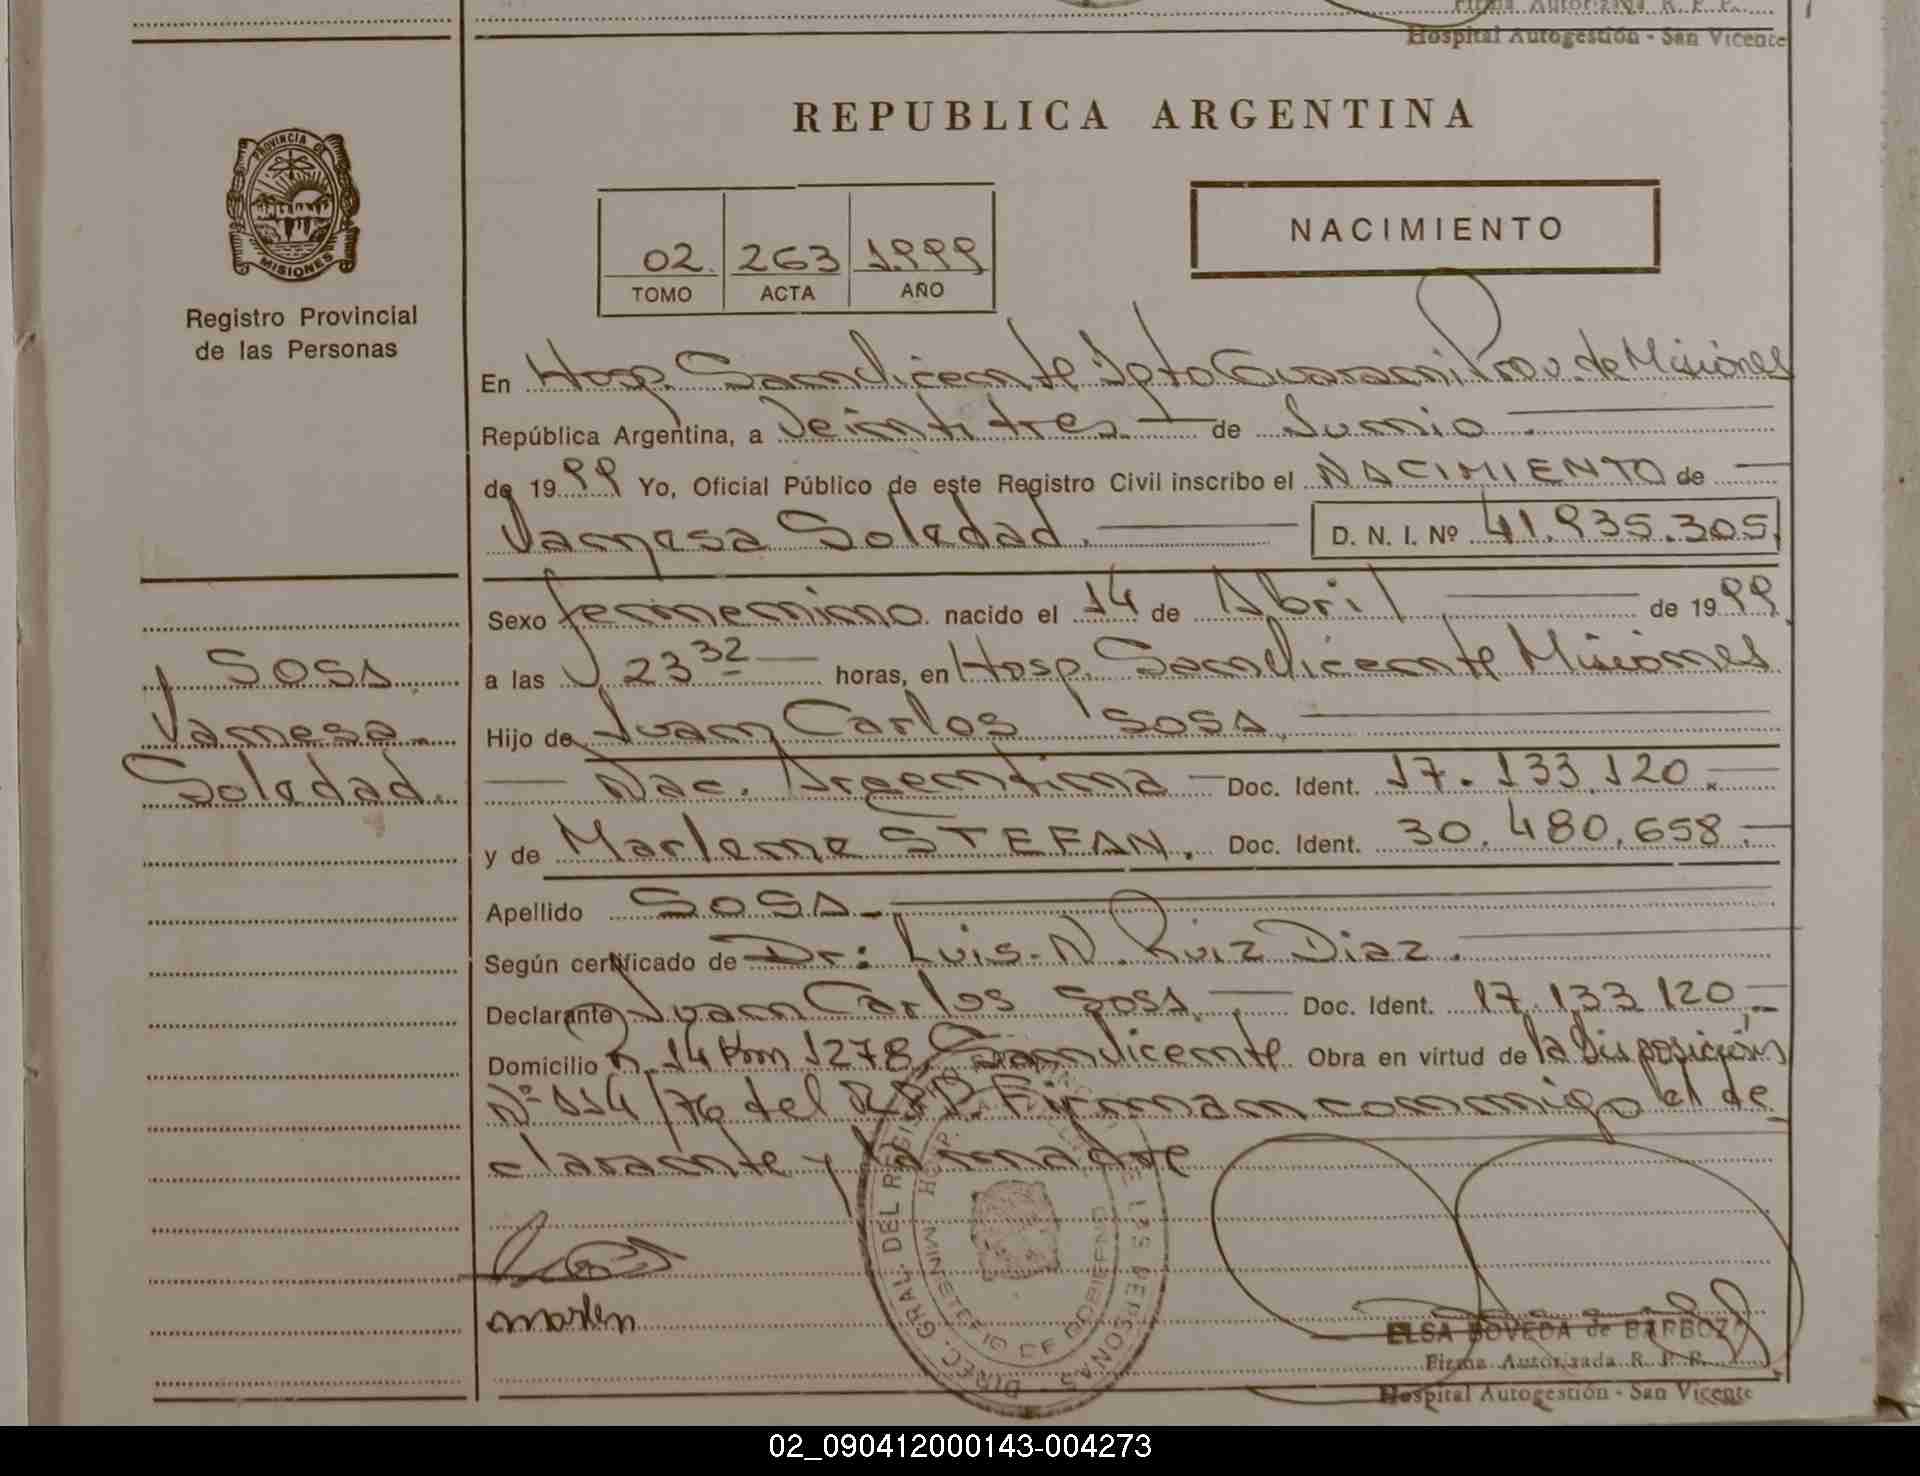 Firma Autorizada R. P. P.
Hospital Autogestión - San Vicente
REPUBLICA ARGENTINA
PROVINCIA DE
MISIONES
Registro Provincial
de las Personas
NACIMIENTO
02. 263 1999
TOMO ACTA AÑO
En Hosp. San Vicente Dpto Guarani Prov. de Misiones
República Argentina, a Veintitres de Junio
de 1999 Yo, Oficial Público de este Registro Civil inscribo el NACIMIENTO de
Vanesa Soledad. D. N. I. Nº 41.935.305
Sexo femenino nacido el 14 de Abril de 1999
a las 23 32 horas, en Hosp. San Vicente Misiones
Hijo de Juan Carlos SOSA
Nac. Argentina Doc. Ident. 17.133.120.
y de Marlene STEFAN. Doc. Ident. 30.480.658.
SOSA
Vanesa
Soledad.
Apellido SOSA
Según certificado de Dr: Luis. N. Ruiz Diaz.
Declarante Juan Carlos SOSA. Doc. Ident. 17.133.120
Domicilio R. 14 Km 1278, San Vicente Obra en virtud de la Disposición
Nº 114/76 del R.P.P. Firman conmigo el de
clarante y la madre
DIREC. GRAL. DEL REGISTRO DE LAS PERSONAS
MINISTERIO DE GOBIERNO
marlen
ELSA BOVEDA de BARBOZA
Firma Autorizada R. P. P.
Hospital Autogestión - San Vicente
02_090412000143-004273